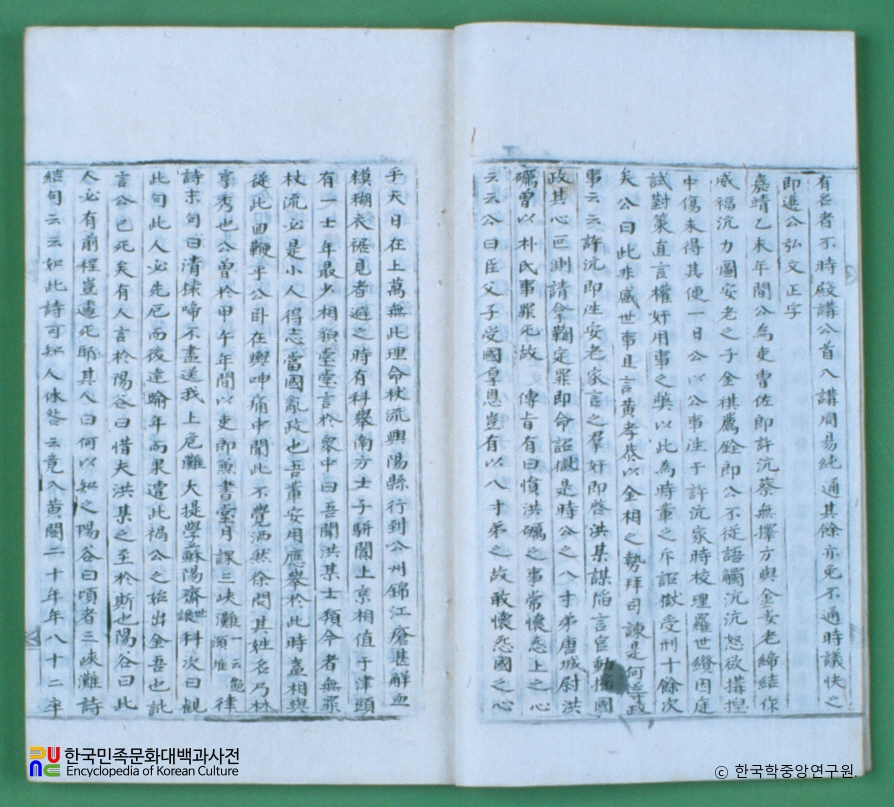 有名者不時殿講公首入講周易純通其餘亦免不通時議快之
即選公弘文正字
嘉靖乙未年間公為吏曹佐郎許沆蔡無擇方與金安老締結作
威福沆力圖安老之子金祺薦銓郎公不從語觸沆沆怒欲搆捏
中傷未得其便一日公以公事往于許沆家時校理羅世纘因庭
試對策直言權奸用事之弊以此為時軰之斥詔獄受刑十餘次
矣公曰此非盛世事且言黃孝恭以金相之勢拜司諫是何等政
事云云許沆即往安老家言之羣奸即啓洪某謀陷言官動搖國
政其心叵測請拿鞫定罪即命詔獄是時公之八寸弟唐城尉洪
礪曾以朴氏事罪死故傳旨有曰憤洪礪之事常懷怨上之心
云云公曰臣父子受國厚恩豈有以八寸弟之故敢懷怨國之心
乎天日在上萬無此理命杖流興陽縣行到公州錦江瘡甚鮮血
模糊衣裾見者避之時有科舉南方士子騈闐上京相值于津頭
有一士年最少相貌堂堂言於衆中曰吾聞洪某士類今者無罪
杖流必是小人得志當國亂政也吾軰安用應舉於此時盍相與
從此回鞭乎公卧在輿呻痛中聞此不覺洒然徐問其姓名乃林
亨秀也公曾於甲午年間以吏郎兼書堂月課三峽灘一云艶澦堆律
詩末句曰清猿啼不盡送我上危灘大提學蘇陽齋世讓科次曰觀
此句此人必先厄而後達踰年而果遭此禍公之始出金吾也訛
言公已死矣有人言於陽谷曰惜夫洪某之至於斯也陽谷曰此
人必有前程豈遽死耶其人曰何以知之陽谷曰頃者三峽灘詩
結句云云如此詩可知人休咎云竟入黃閣二十年年八十二卒
한국민족문화대백과사전
Encyclopedia of Korean Culture
© 한국학중앙연구원